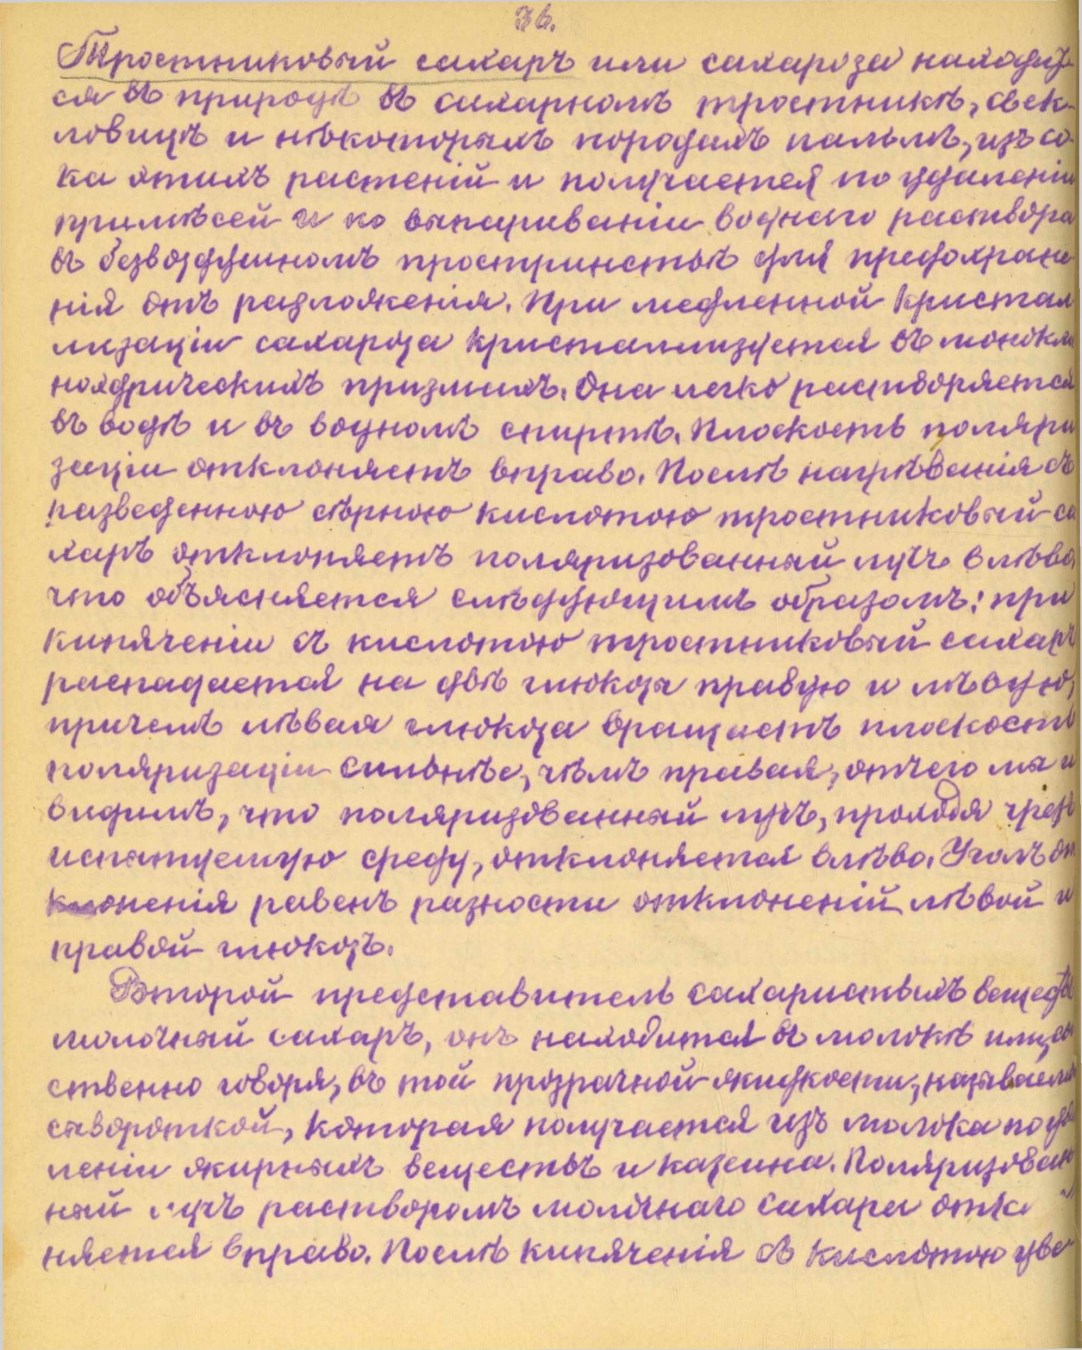 36.
Тростниковый сахаръ или сахароза находит-
ся въ природѣ въ сахарномъ тростникѣ, свек-
ловицѣ и нѣкоторыхъ породахъ пальмъ, изъ со-
ка этихъ растеній и получается по удаленіи
примѣсей и по выпариваніи воднаго раствора
въ безвоздушномъ пространствѣ для предохране-
нія отъ разложенія. При медленной кристал-
лизаціи сахароза кристаллизуется въ монокли-
ноэдрическихъ призмахъ. Она легко растворяется
въ водѣ и въ водномъ спиртѣ. Плоскость поляри-
заціи отклоняетъ вправо. Послѣ нагрѣванія съ
разведенною сѣрною кислотою тростниковый са-
харъ отклоняетъ поляризованный лучъ влѣво,
что объясняется слѣдующимъ образомъ: при
кипяченіи съ кислотою тростниковый сахаръ
распадается на двѣ глюкозы правую и лѣвую,
причемъ лѣвая глюкоза вращаетъ плоскость
поляризаціи сильнѣе, чѣмъ правая, отчего мы и
видимъ, что поляризованный лучъ, проходя чрезъ
испытуемую среду, отклоняется влѣво. Уголъ от-
клоненія равенъ разности отклоненій лѣвой и
правой глюкозъ.
Второй представитель сахаристыхъ веществъ
молочный сахаръ, онъ находится въ молокѣ или, соб-
ственно говоря, въ той прозрачной жидкости, называемой
сывороткой, которая получается изъ молока по уда-
леніи жирныхъ веществъ и казеина. Поляризован-
ный лучъ растворомъ молочнаго сахара откло-
няется вправо. Послѣ кипяченія съ кислотою уве-